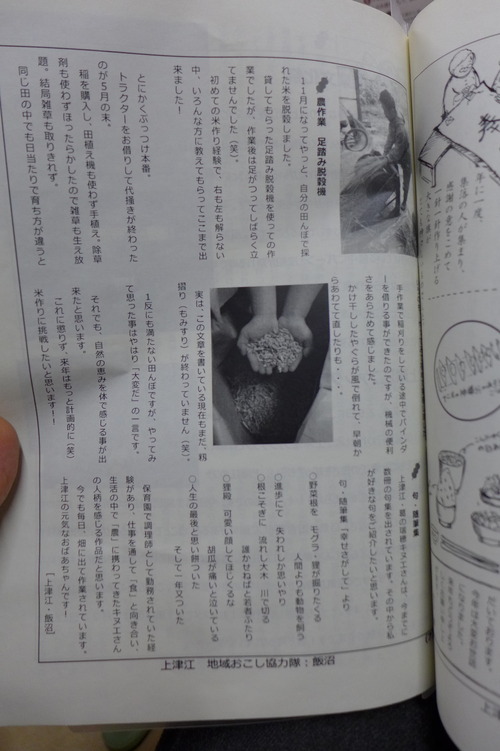 農作業 足踏み脱穀機
11月になってやっと、自分の田んぼで採
れた米を脱穀しました。
貸してもらった足踏み脱穀機を使っての作
業でしたが、作業後は足がつってしばらく立
てませんでした(笑)。
初めての米作り経験で、右も左も解らない
中、いろんな方に教えてもらってここまで出
来ました!
とにかくぶっつけ本番。
トラクターをお借りして代掻きが終わった
のが5月の末。
稲を購入し、田植え機も使わず手植え。除草
剤も使わずほったらかしたので雑草も生え放
題。結局雑草も取りきれず。
同じ田の中でも日当たりで育ち方が違うと
手作業で稲刈りをしている途中でバインダ
ーを借りる事ができたのですが、機械の便利
さをあらためて感じました。
かけ干ししたやぐらが風で倒れて、早朝か
らあわてて直したりも・・・。
実は、この文章を書いている現在もまだ、籾
摺り(もみすり)が終わっていません(笑)。
1反にも満たない田んぼですが、やってみ
て思った事はやはり「大変だ」の一言です。
それでも、自然の恵みを体で感じる事が出
来たと思います。
これに懲りず、来年はもっと計画的に(笑)
米作りに挑戦したいと思います!!
句・随筆集
上津江、
の
キヌエさんは、今までに
数冊の句集を出されています。その中から私
が好きな句をご紹介したいと思います。
句・随筆集「幸せさがして」より
○野菜根を モグラ・狸が掘りたくる
人間よりも動物を飼う
○進歩にて 失われしか思いやり
誰かせねばと若者ふたり
○根こそぎに 流れし大木 川で切る
○狸殿 可愛い顔してほじくるな
胡瓜が痛いと泣いている
○人生の最後と思い餅ついた
そして一年又ついた
保育園で調理師として勤務されていた経
験があり、仕事を通して「食」と向き合い、
生活の中で「農」に携わってきたキヌエさん
の人柄を感じる作品だと思います。
今でも毎日、畑に出て作業されています。
上津江の元気なおばあちゃんです!
[上津江・飯沼]
上津江 地域おこし協力隊:飯沼
年に一度、
集落の人が集まり、
感謝の意をこめて
一針一針作り上げる